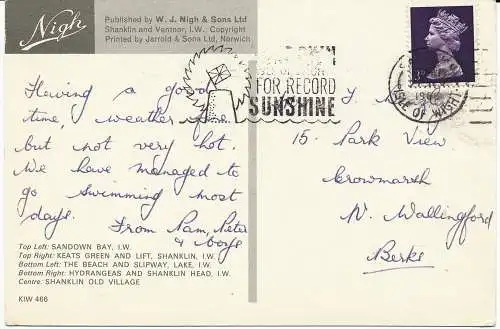 Nigh
Published by W. J. Nigh & Sons Ltd
Shanklin and Ventnor, I.W. Copyright
Printed by Jarrold & Sons Ltd, Norwich
FOR RECORD
SUNSHINE
ISLE OF WIGHT
Having a good
time, weather fine
but not very hot.
We have managed to
go swimming most
days.
From Pam, Peter
& boys
15. Park View
Crowmarsh
Nr. Wallingford
Berks
Top Left: SANDOWN BAY, I.W.
Top Right: KEATS GREEN AND LIFT, SHANKLIN, I.W.
Bottom Left: THE BEACH AND SLIPWAY, LAKE, I.W.
Bottom Right: HYDRANGEAS AND SHANKLIN HEAD, I.W.
Centre: SHANKLIN OLD VILLAGE
KIW 466